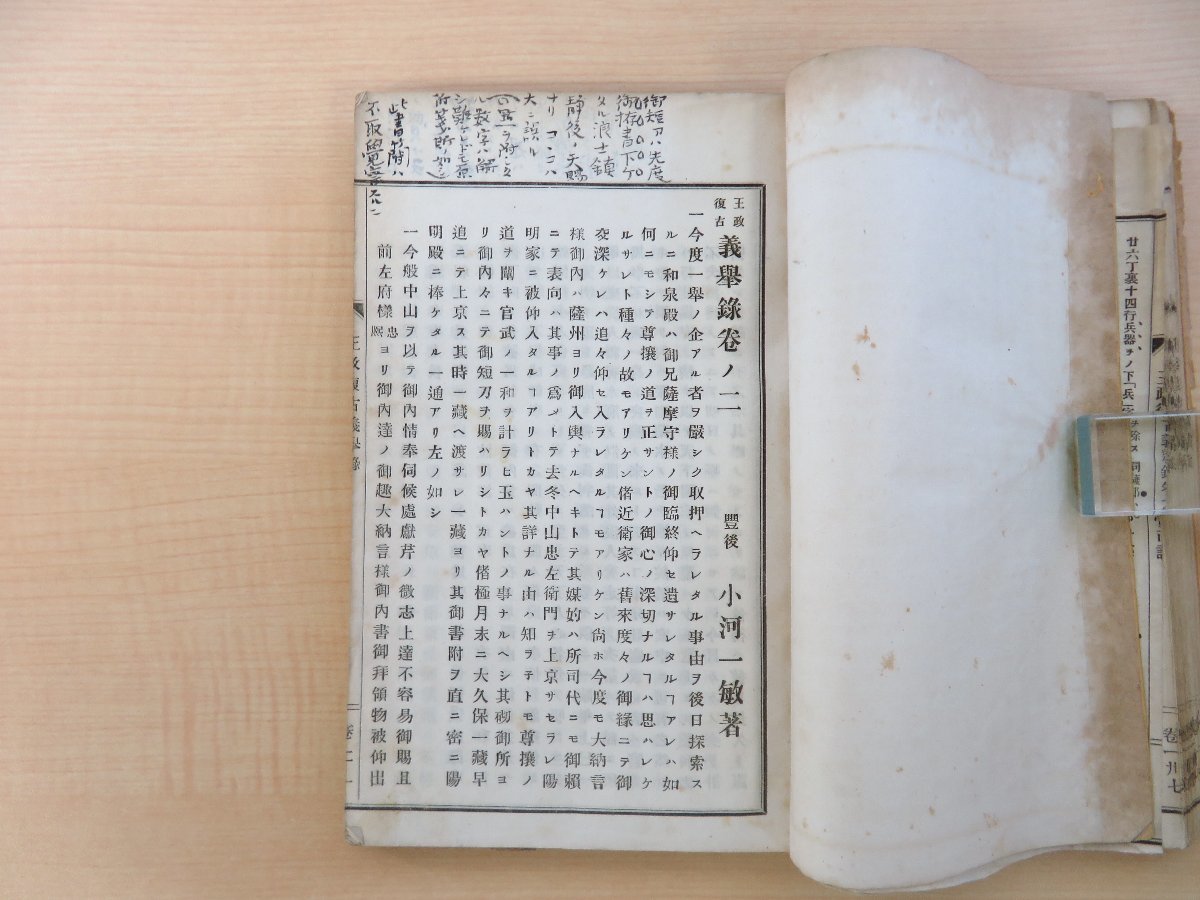 王政復古 義擧錄卷ノ二
豐後 小河一敏著
一今度一擧ノ企アル者ヲ嚴シク取押ヘラレタル事由ヲ後日探索ス
ルニ和泉殿ハ御兄薩摩守樣ノ御臨終仰セ遺サレタルヿアレハ如
何ニモシテ尊攘ノ道ヲ正サントノ御心ノ深切ナルヿハ思ハレケ
ルサレト種々ノ故モアリケン偖近衛家ハ舊來度々ノ御緣ニテ御
交深ケレハ追々仰セ入ラレタルヿモアリケン尙ホ今度モ大納言
樣御內ハ薩州ヨリ御入輿ナルヘキトテ其媒妁ハ所司代ニモ御賴
ニテ表向ハ其事ノ爲メトテ去冬中山忠左衛門ヲ上京サセラレ陽
明家ニ被仰入タルヿアリトカヤ其詳ナル由ハ知ラネトモ尊攘ノ
道ヲ開キ官武ノ一和ヲ計ラヒ玉ハントノ事ナルヘシ其砌御所ヨ
リ御內々ニテ御短刀ヲ賜ハリシトカヤ偖極月末ニ大久保一藏早
追ニテ上京ス其時一藏ヘ渡サレ一藏ヨリ其御書附ヲ直ニ密ニ陽
明殿ニ捧ケタル一通アリ左ノ如シ
一今般中山ヲ以テ御內情奉伺候處獻芹ノ微志上達不容易御賜且
前左府樣忠熙ヨリ御內達ノ御趣大納言樣御內書御拜領物被仰出
御短刀ハ先度
タル浪士鎭
靜後ノ天賜
ナリココハ
大ニ誤ル
ル數字ハ解
シ難ケレドモ原
此書附ハ
卷二
廿六丁裏十四行兵器ヲノ下「兵
卷一
卅七